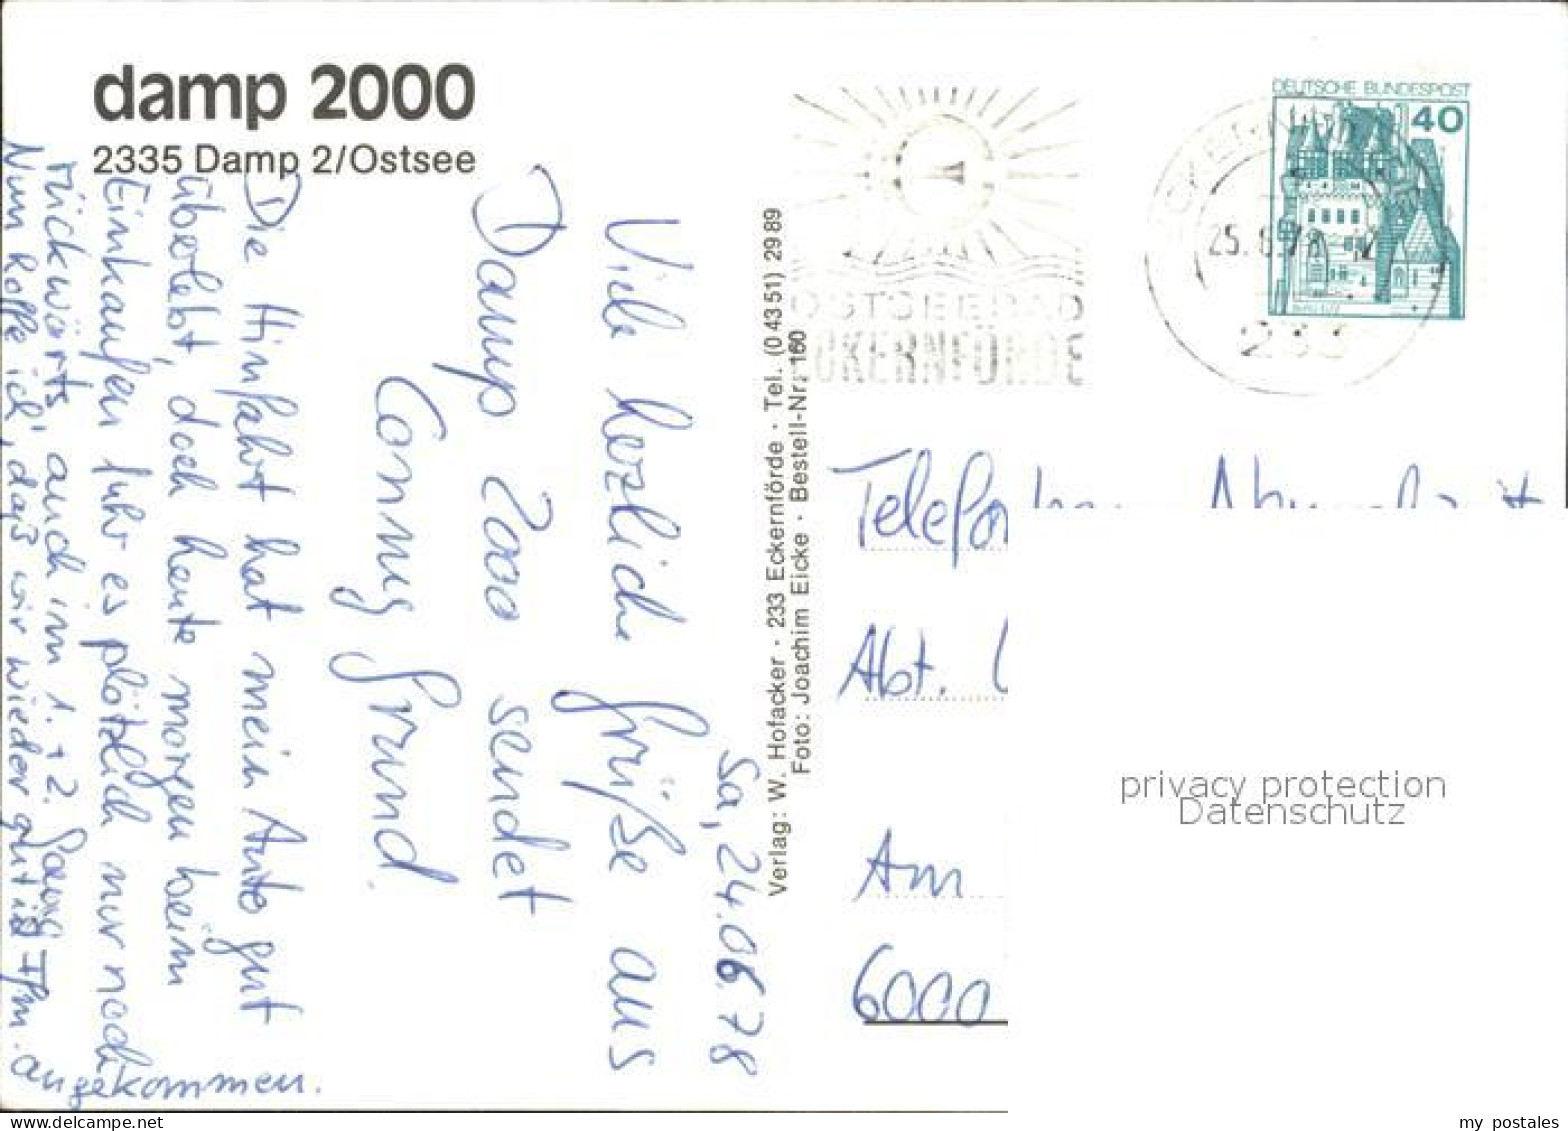 damp 2000
2335 Damp 2/Ostsee
Sa, 24.06.78
Viele herzliche Grüße aus
Damp 2000 sendet
Conny Grund.
Die Hinfahrt hat mein Auto gut
überlebt, doch heute morgen beim
Einkaufen fuhr es plötzlich nur noch
rückwärts, auch im 1. + 2. Gang
Nun hoffe ich, daß wir wieder gut in Ffm.
angekommen.
Verlag: W. Hofacker · 233 Eckernförde · Tel. (0 43 51) 29 89
Foto: Joachim Eicke · Bestell-Nr. 160
OSTSEEBAD
ECKERNFÖRDE
DEUTSCHE BUNDESPOST
40
BURG ELTZ
25.6.78
233
Abt.
Am
6000
privacy protection
Datenschutz
my postales